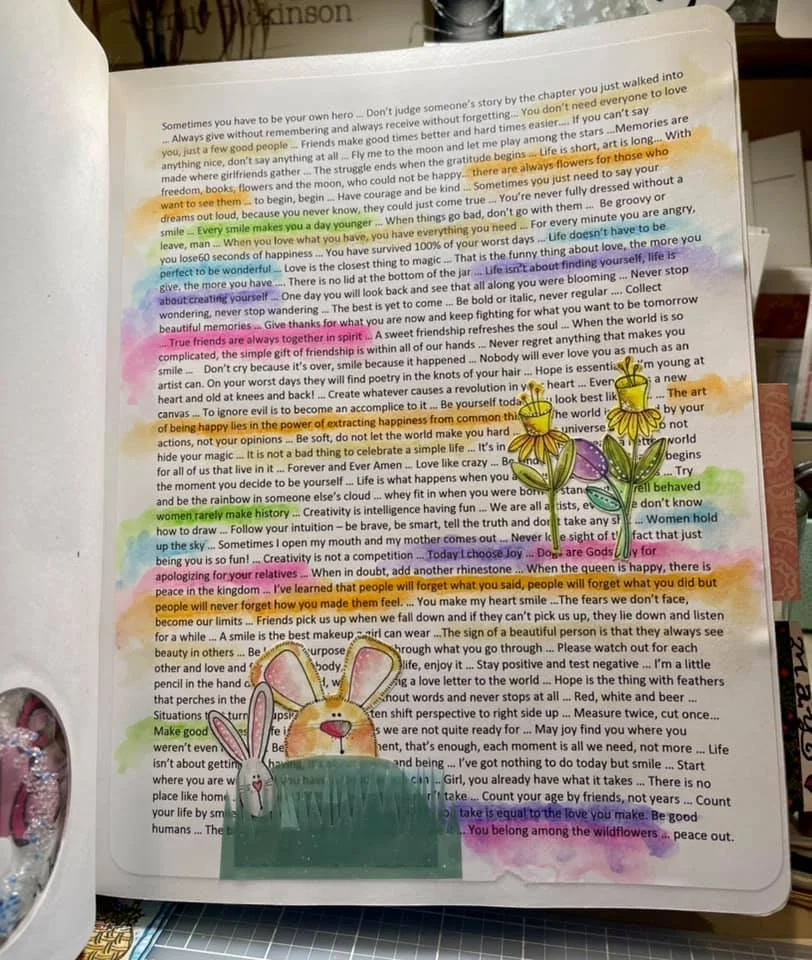 kinson
Sometimes you have to be your own hero ... Don't judge someone's story by the chapter you just walked into
... Always give without remembering and always receive without forgetting... You don't need everyone to love
you, just a few good people ... Friends make good times better and hard times easier.... If you can't say
anything nice, don't say anything at all ... Fly me to the moon and let me play among the stars ...Memories are
made where girlfriends gather ... The struggle ends when the gratitude begins ... Life is short, art is long... With
freedom, books, flowers and the moon, who could not be happy... there are always flowers for those who
want to see them ... to begin, begin ... Have courage and be kind ... Sometimes you just need to say your
dreams out loud, because you never know, they could just come true ... You're never fully dressed without a
smile ... Every smile makes you a day younger ... When things go bad, don't go with them ... Be groovy or
leave, man ... When you love what you have, you have everything you need ... For every minute you are angry,
you lose60 seconds of happiness ... You have survived 100% of your worst days ... Life doesn't have to be
perfect to be wonderful ... Love is the closest thing to magic ... That is the funny thing about love, the more you
give, the more you have .... There is no lid at the bottom of the jar ... Life isn't about finding yourself, life is
about creating yourself ... One day you will look back and see that all along you were blooming ... Never stop
wondering, never stop wandering ... The best is yet to come ... Be bold or italic, never regular .... Collect
beautiful memories ... Give thanks for what you are now and keep fighting for what you want to be tomorrow
... True friends are always together in spirit ... A sweet friendship refreshes the soul ... When the world is so
complicated, the simple gift of friendship is within all of our hands ... Never regret anything that makes you
smile ... Don't cry because it's over, smile because it happened ... Nobody will ever love you as much as an
artist can. On your worst days they will find poetry in the knots of your hair ... Hope is essential I'm young at
heart and old at knees and back! ... Create whatever causes a revolution in heart ... Even a new
canvas ... To ignore evil is to become an accomplice to it ... Be yourself today look best ... The art
of being happy lies in the power of extracting happiness from common the world by your
actions, not your opinions ... Be soft, do not let the world make you hard universe do not
hide your magic ... It is not a bad thing to celebrate a simple life ... It's in a world
for all of us that live in it ... Forever and Ever Amen ... Love like crazy ... Be begins
the moment you decide to be yourself ... Life is what happens when you ... Try
and be the rainbow in someone else's cloud ... whey fit in when you were born stand behaved
women rarely make history ... Creativity is intelligence having fun ... We are all artists, don't know
how to draw ... Follow your intuition – be brave, be smart, tell the truth and don't take any ... Women hold
up the sky ... Sometimes I open my mouth and my mother comes out ... Never lose sight of the fact that just
being you is so fun! ... Creativity is not a competition ... Today I choose Joy ... Dogs are Gods way for
apologizing for your relatives ... When in doubt, add another rhinestone ... When the queen is happy, there is
peace in the kingdom ... I've learned that people will forget what you said, people will forget what you did but
people will never forget how you made them feel. ... You make my heart smile ...The fears we don't face,
become our limits ... Friends pick us up when we fall down and if they can't pick us up, they lie down and listen
for a while ... A smile is the best makeup a girl can wear ...The sign of a beautiful person is that they always see
beauty in others ... Be through what you go through ... Please watch out for each
other and love and life, enjoy it ... Stay positive and test negative ... I'm a little
pencil in the hand a love letter to the world ... Hope is the thing with feathers
that perches in the words and never stops at all ... Red, white and beer ...
Situations turn shift perspective to right side up ... Measure twice, cut once...
Make good we are not quite ready for ... May joy find you where you
weren't even that's enough, each moment is all we need, not more ... Life
isn't about getting and being ... I've got nothing to do today but smile ... Start
where you are can ... Girl, you already have what it takes ... There is no
place like home take ... Count your age by friends, not years ... Count
your life by take is equal to the love you make. Be good
humans ... The ... You belong among the wildflowers ... peace out.